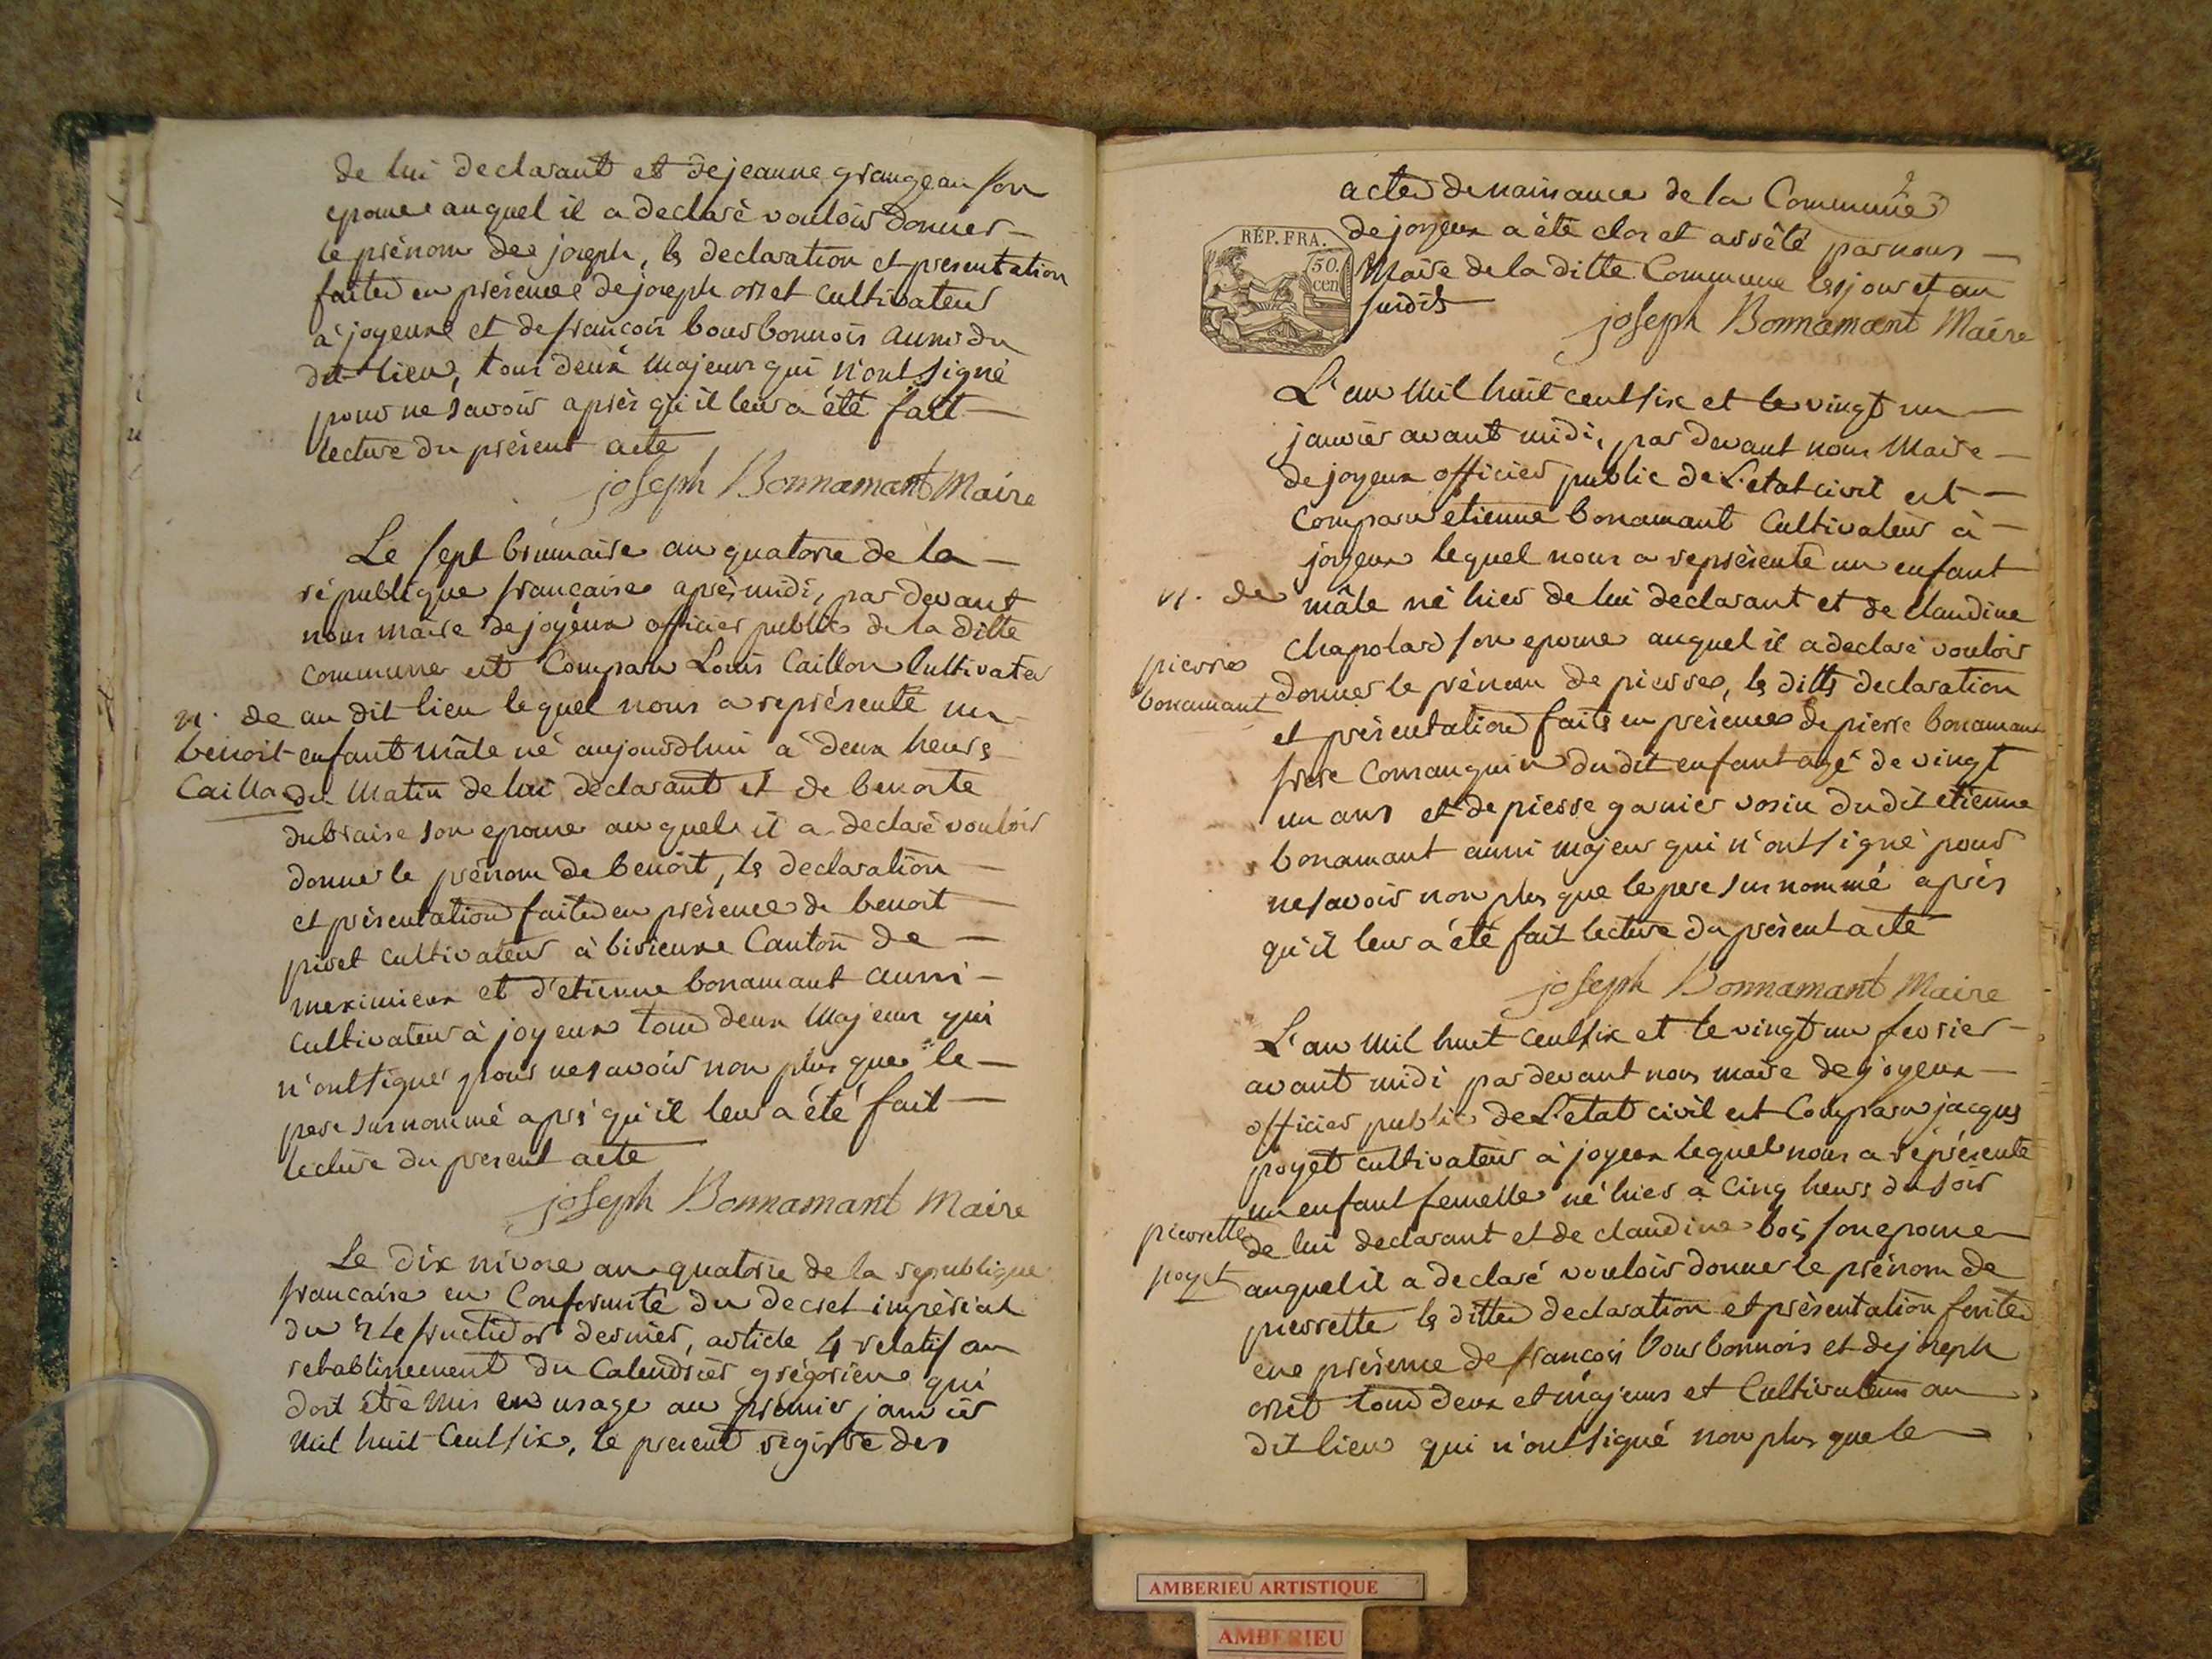 de lui declarant et de jeanne grangean son
epouse auquel il a declaré vouloir donner
le prénom de joseph, les declaration et presentation
faites en présence de joseph orset cultivateur
à joyeux et de francois bourbonnois aussi du
dit lieu, tous deux majeurs qui n'ont signé
pour ne savoir après qu'il leur a été fait
lecture du présent acte
joseph Bonnamant Maire
Le sept brumaire an quatorze de la
république francaise après midi, par devant
nous maire de joyeux officier public de la ditte
commune est comparu Louis Caillon Cultivateur
n. de au dit lieu lequel nous a représenté un
benoit enfant mâle né aujourdhui à deux heures
Caillon du matin de lui déclarant et de benoite
dubraise son epouse auquel il a declaré vouloir
donner le prénom de benoit, les declaration
et présentation faites en présence de benoit
pivet cultivateur à birieux Canton de
meximieux et d'etienne bonamant aussi
cultivateur à joyeux tous deux Majeurs qui
n'ont signé pour ne savoir non plus que le
pere surnommé après qu'il leur a été fait
lecture du present acte
joseph Bonnamant Maire
Le dix nivose an quatorze de la republique
francaise en Conformité du decret impèrial
du fructidor dernier, article 4 relatif au
retablissement du Calendrier grégorien qui
doit être mis en usage au premier janvier
mil huit Cent six, le present registre des
2
actes de naissance de la Commune
de joyeux a été clos et arrêté par nous
RÉP. FRA.
50. cen
Maire de la ditte Commune les jour et an
susdits
joseph Bonnamant Maire
L'an Mil huit cent six et le vingt un
janvier avant midi, par devant nous Maire
de joyeux officier public de L'etat civil est
comparu etienne bonamant Cultivateur à
joyeux lequel nous a représenté un enfant
n. de mâle né hier de lui declarant et de claudine
chapolard son epouse auquel il a declaré vouloir
pierre
donner le prénom de pierre, les dittes declaration
bonamant
et présentation faites en présence de pierre bonamant
frere consanguin du dit enfant agé de vingt
un ans et de pierre garnier voisin du dit etienne
bonamant aussi majeur qui n'ont signé pour
ne savoir non plus que le pere surnommé après
qu'il leur a été fait lecture du présent acte
joseph Bonnamant Maire
L'an Mil huit Cent six et le vingt un fevrier
avant midi par devant nous maire de joyeux
officier public de L'etat civil est Comparu jacques
poyet cultivateur à joyeux lequel nous a représenté
un enfant femelle né hier à cinq heurs du soir
pierrette de lui declarant et de claudine bois son epouse
poyet auquel il a declaré vouloir donner le prénom de
pierrette les dittes declaration et présentation faites
en présence de francois bourbonnois et de joseph
orset tous deux et majeurs et Cultivateurs au
dit lieu qui n'ont signé non plus que le
AMBERIEU ARTISTIQUE
AMBERIEU